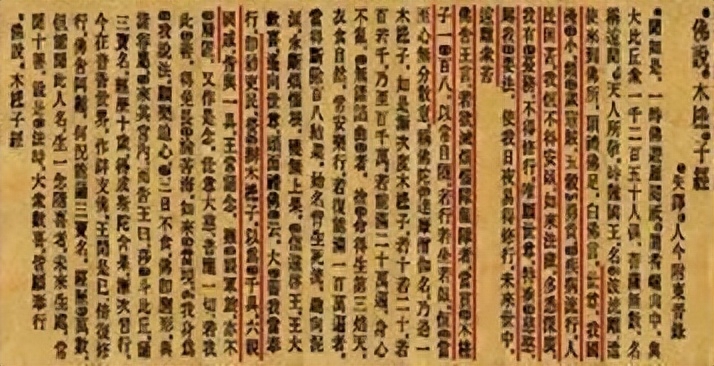 佛說木槵子經
失譯人今附東晉錄
聞如是一時佛遊羅閱祇耆闍崛山中與
大比丘眾一千二百五十人俱菩薩無數名
稱遠聞天人所敬時難國王名波流離遣
使來到佛所頂禮佛足白佛言世尊我國
邊小頻歲寇賊五穀勇貴疾病流行人
民困苦我恒不得安臥如來法藏多悉深廣
我有憂務不得修行唯願世尊特垂慈愍
賜我要法使我日夜易得修行未來世中
遠離眾苦
佛告王言若欲滅煩惱障報障者當貫木槵
子一百八以常自隨若行若坐若臥恒當
至心無分散意稱佛陀達磨僧伽名乃過一
木槵子如是漸次度木槵子若十若二十若
百若千乃至百千萬若能滿二十萬遍身心
不亂無諸諂曲者捨命得生第三焰天
衣食自然常安樂行若復能滿一百萬遍者
當得斷除百八結業始名背生死流趣向泥
洹永斷煩惱根獲無上果信還啟王王大
歡喜遙向世尊頭面禮佛云大善我當奉
行即勅吏民營辦木槵子以為千具六親
國戚皆與一具王常誦念雖親軍旅亦不
廢置又作是念世尊大慈普應一切若我
此善得免長淪苦海如來當現為
我說法願樂迫心三日不食佛即應形與
諸聖眾來入宮內而告王曰莎斗比丘誦
三寶名經歷十歲得成斯陀含果漸次習行
今在普香世界作辟支佛王聞是已倍復修
行佛告阿難何況能誦三寶名經歷萬數
但能聞此人名生一念隨喜者未來生處常
聞十善說是法時大眾歡喜皆願奉行
佛說木槵子經